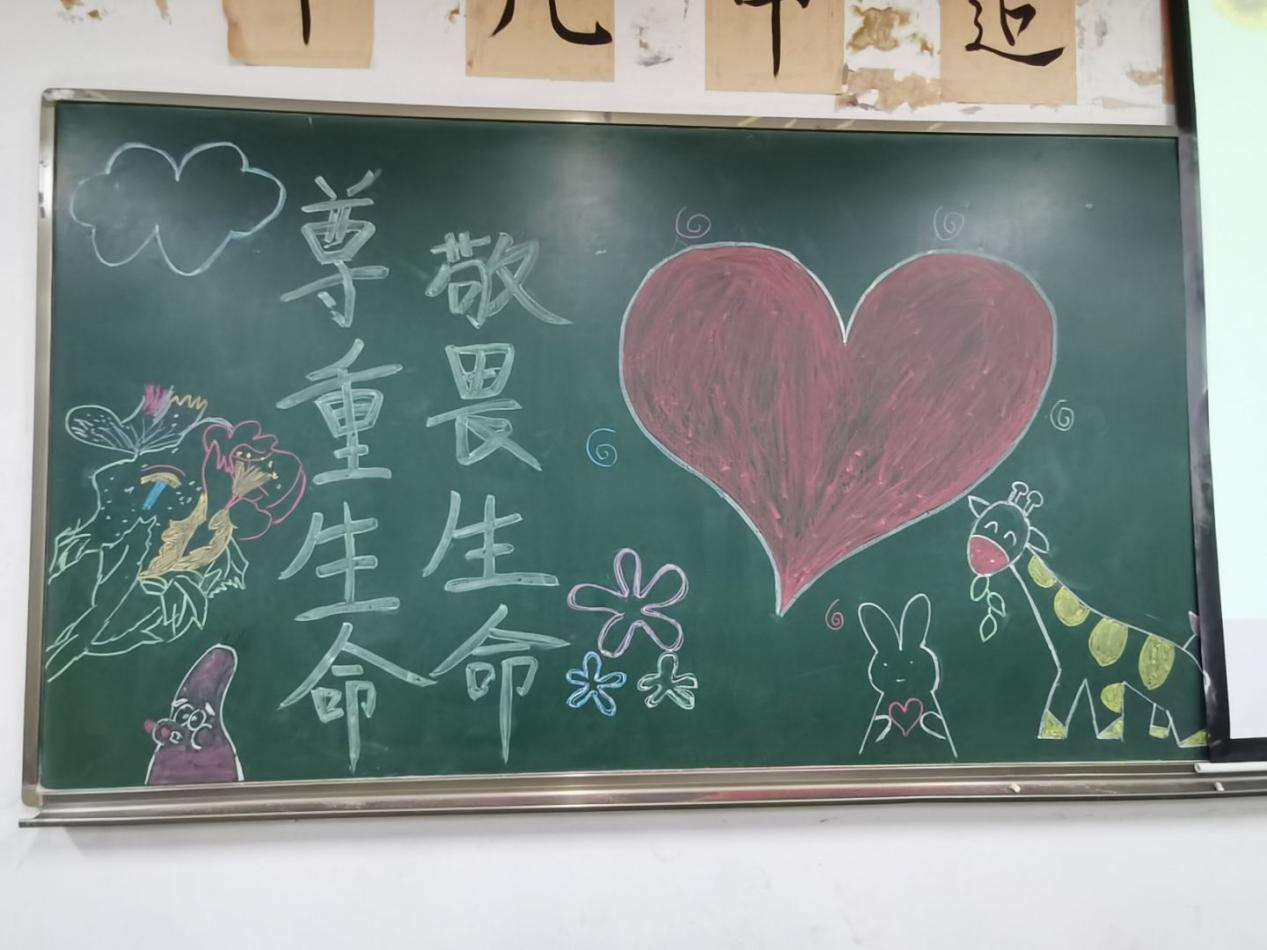 尊重生命
敬畏生命